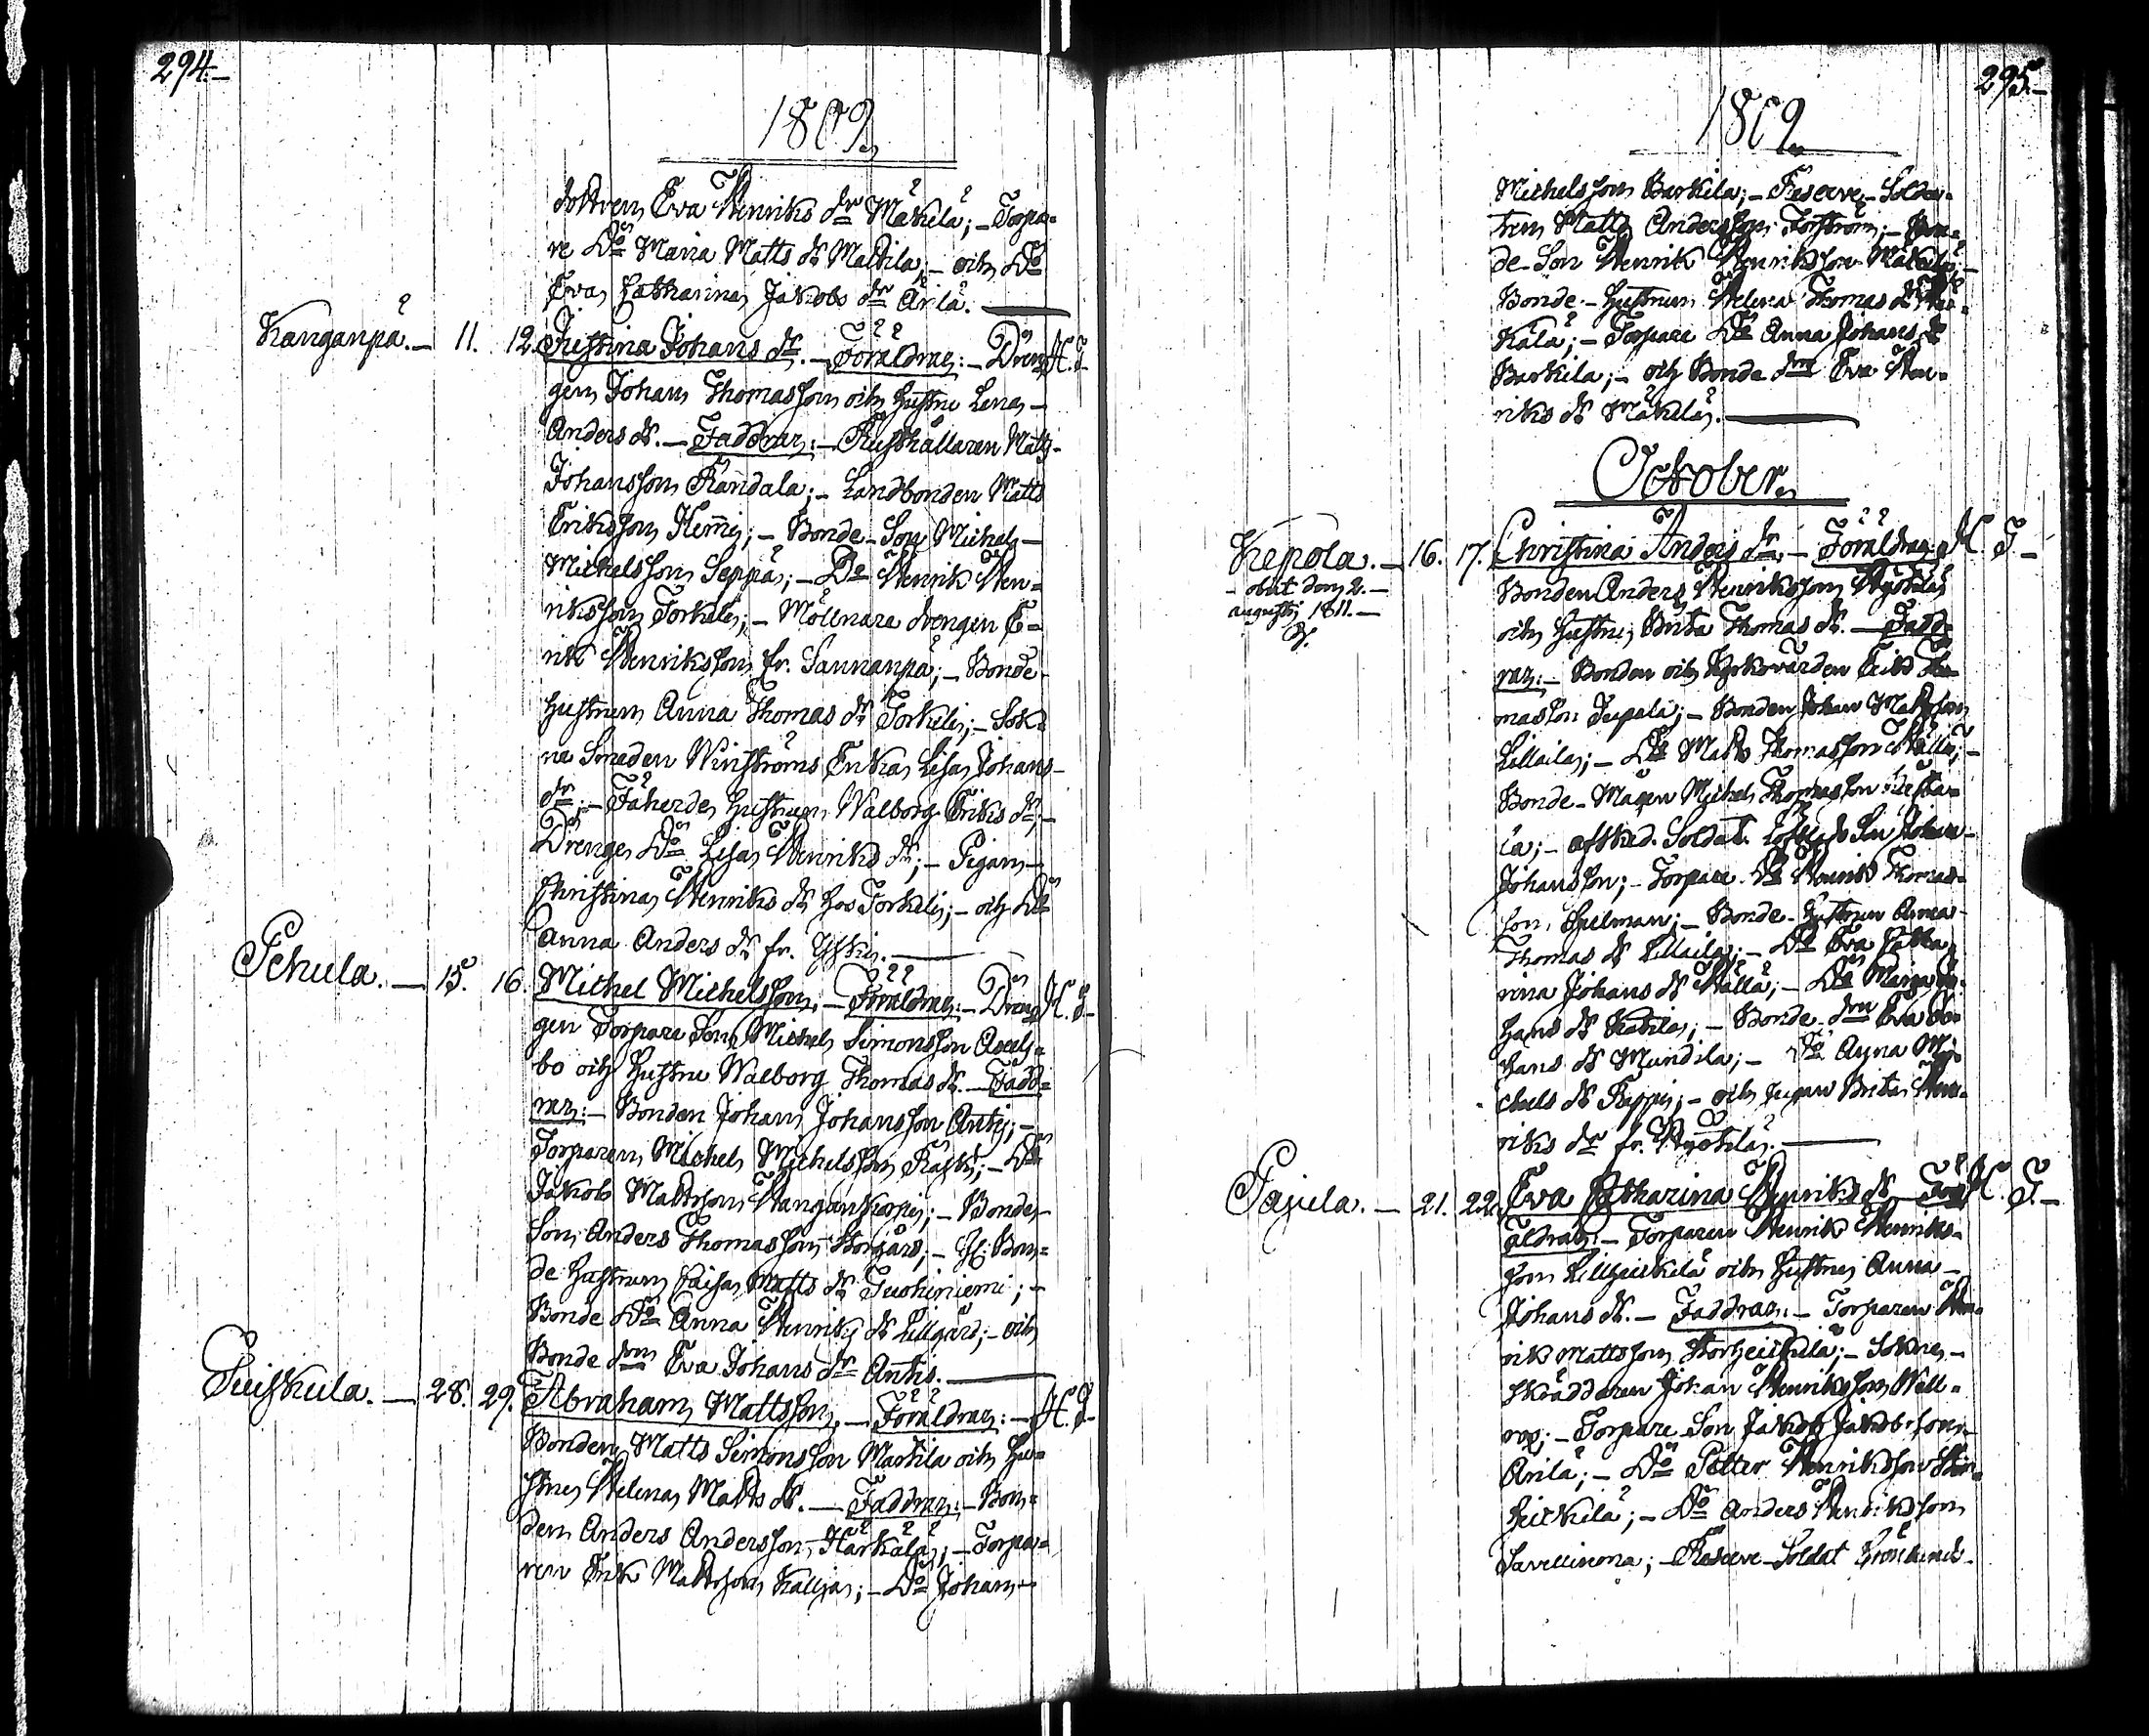 294.
1809.
dottren Eva Henriks dr Mäkelä; – Torpa=
re Do Maria Matts dr Mattila; – och Do
Eva Catharina Jakobs dr Arila.
Kanganpä. – 11. 12. Justina Johans dr. – Föräldrar: – Drän= H. T.
gen Johan Thomasson och hustru Lena
Anders dr. – Faddrar: – Rusthållaren Matts
Johansson Randala; – Landbonden Matts
Eriksson Hemmi; – Bonde-Son Michel
Michelsson Seppä; – Do Henrik Hen=
riksson Torkeli; – Möllnare drengen E=
rik Henriksson fr. Sannanpä; – Bonde-
hustrun Anna Thomas dr Torkeli; – Sok=
ne Smeden Winströms Enka Lisa Johans
dr; – Fäherde hustrun Walborg Eriks dr; –
Drenge Do Lisa Henriks dr; – Pigan
Christina Henriks dr hos Torkeli; – och Do
Anna Anders dr fr. Yski.
Pehula. – 15. 16. Michel Michelsson. – Föräldrar: – Drän= H. T.
gen Torpare Son Michel Simonsson Axels=
bo och hustru Walborg Thomas dr. – Fadd=
rar: – Bonden Johan Johansson Anti; –
Torparen Michel Michelsson Raski; – Do
Jakob Mattsson Kangunkorpi; – Bonde-
Son Anders Thomasson Storgård; – Bon=
de hustrun Caisa Matts dr Tuohiniemi; –
Bonde Do Anna Henriks dr Lillgård; – och
Bonde drn Eva Johans dr Antis.
Puiskula. – 28. 29. Abraham Mattsson. – Föräldrar: – H. T.
Bonden Matts Simonsson Markila och hu=
stru Helena Matts dr. – Faddrar: – Bon=
den Anders Andersson Härkälä; – Torpa=
ren Erik Mattsson Kallja; – Do Johan
295.
1809
Michelsson Barkila; – Reserve-Solda=
ten Matts Andersson Forström; – Bon=
de-Son Henrik Henriksson Mäkelä; –
Bonde-hustrun Helena Thomas dr Här=
kälä; – Torpare Do Anna Johans dr
Barkila; – och Bonde drn Eva Hen=
riks dr Mäkelä.
October.
Kepola. – 16. 17. Christina Anders dr. – Föräldrar: H. T.
– obiit den 2.
augusti 1811. –
Bonden Anders Henriksson
och hustru Brita Thomas dr. – Fadd=
rar: – Bonden och Kyrkovärden Erik Tho=
masson Jupela; – Bonden Johan Mattsson
Lillaila; – Do Matts Thomasson
Bonde-Mågen Michel Thomasson
la; – afsked. Soldat Son Johan
Johansson; – Torpare Do Henrik Thomas=
son Spelman; – Bonde-hustrun Anna
Thomas dr Lillaila; – Do Eva Catha=
rina Johans dr Hällä; – Do Maria Jo=
hans dr Kattila; – Bonde drn Eva Jo=
hans dr Mundila; – Do Anna Mi=
chels dr Rippi; – och pigan Brita Hen=
riks dr fr.
Pajula. – 21. 22. Eva Catharina Henriks dr. – För= H. T.
äldrar: – Torparen Henrik Henriks=
son Lillheickilä och hustru Anna
Johans dr. – Faddrar: – Torparen Hen=
rik Mattsson Storheickilä; – Sokne
Skräddaren Johan Henriksson Well=
ros; – Torpare Son Jakob Jakobsson
Arila; – Do Petter Henriksson Stor=
heickilä; – Do Anders Henriksson
Savellinoma; – Reserve-Soldat